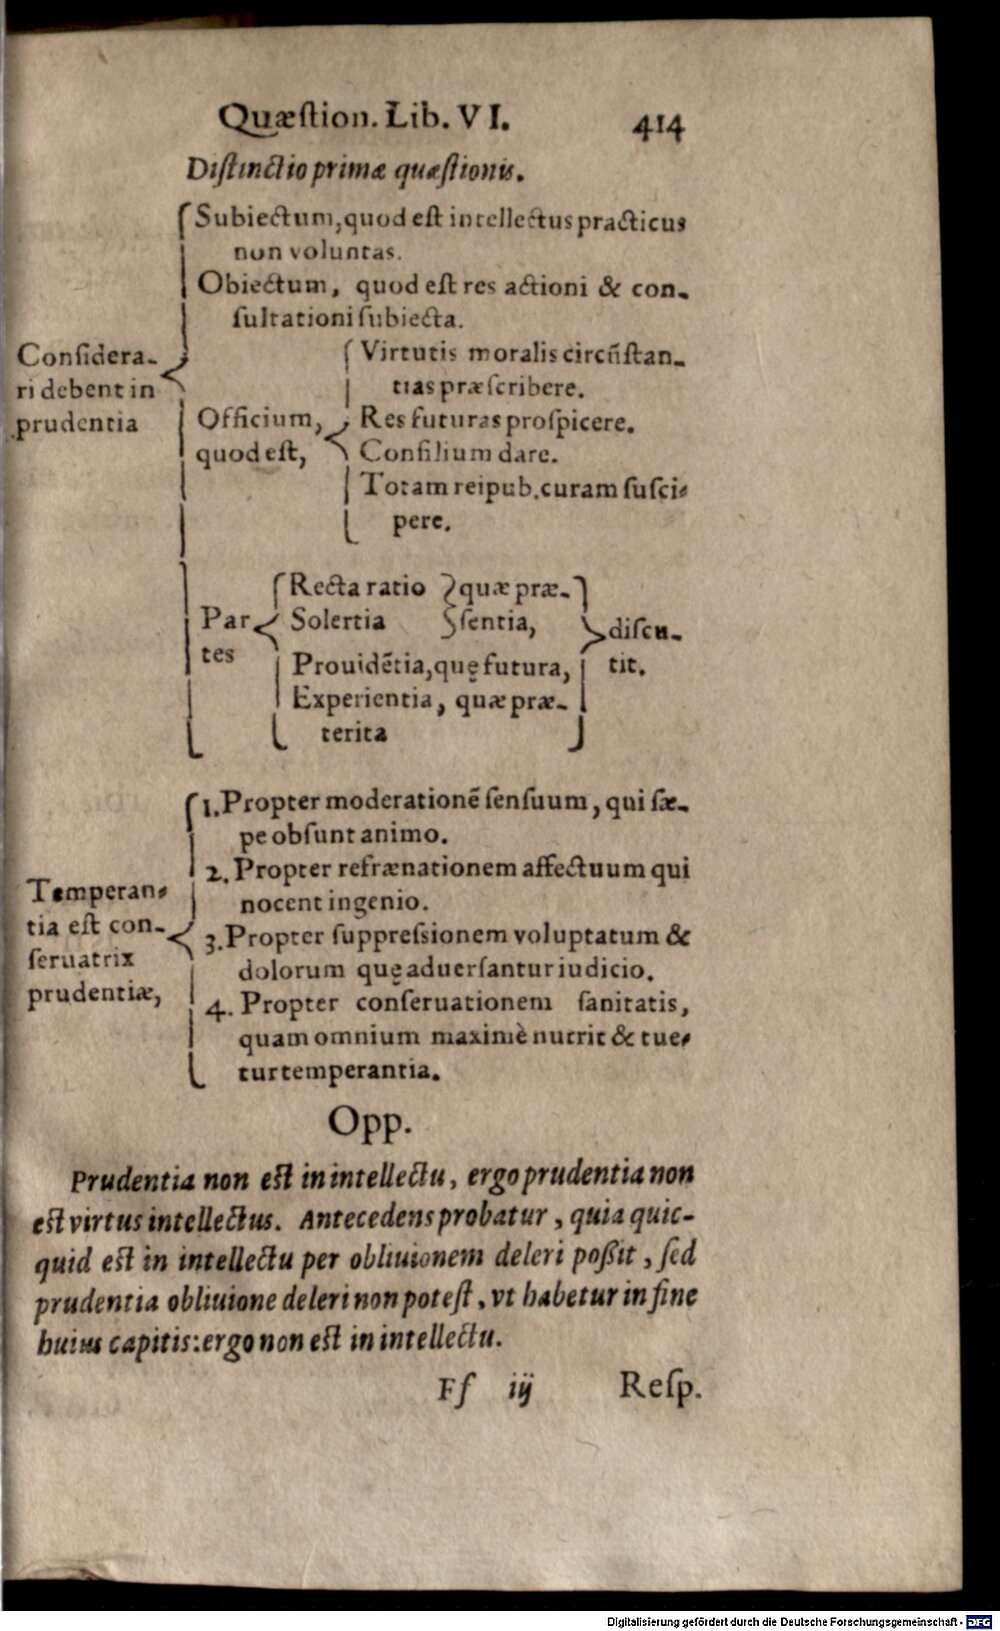 Quæstion. Lib. VI. 414
Distinctio primæ quæstionis.
Considera-
ri debent in
prudentia
Subiectum, quod est intellectus practicus
non voluntas.
Obiectum, quod est res actioni & con-
sultationi subiecta.
Officium,
quod est,
Virtutis moralis circũstan-
tias præscribere.
Res futuras prospicere.
Consilium dare.
Totam reipub. curam susci-
pere.
Par
tes
Recta ratio
Solertia
quæ præ-
sentia,
Prouidẽtia, quę futura,
Experientia, quæ præ-
terita
discu-
tit.
Temperan-
tia est con-
seruatrix
prudentiæ,
1. Propter moderationẽ sensuum, qui sæ-
pe obsunt animo.
2. Propter refrænationem affectuum qui
nocent ingenio.
3. Propter suppressionem voluptatum &
dolorum quę aduersantur iudicio.
4. Propter conseruationem sanitatis,
quam omnium maximè nutrit & tue-
tur temperantia.
Opp.
Prudentia non est in intellectu, ergo prudentia non
est virtus intellectus. Antecedens probatur, quia quic-
quid est in intellectu per obliuionem deleri possit, sed
prudentia obliuione deleri non potest, vt habetur in fine
huius capitis: ergo non est in intellectu.
Ff iij Resp.
Digitalisierung gefördert durch die Deutsche Forschungsgemeinschaft - DFG